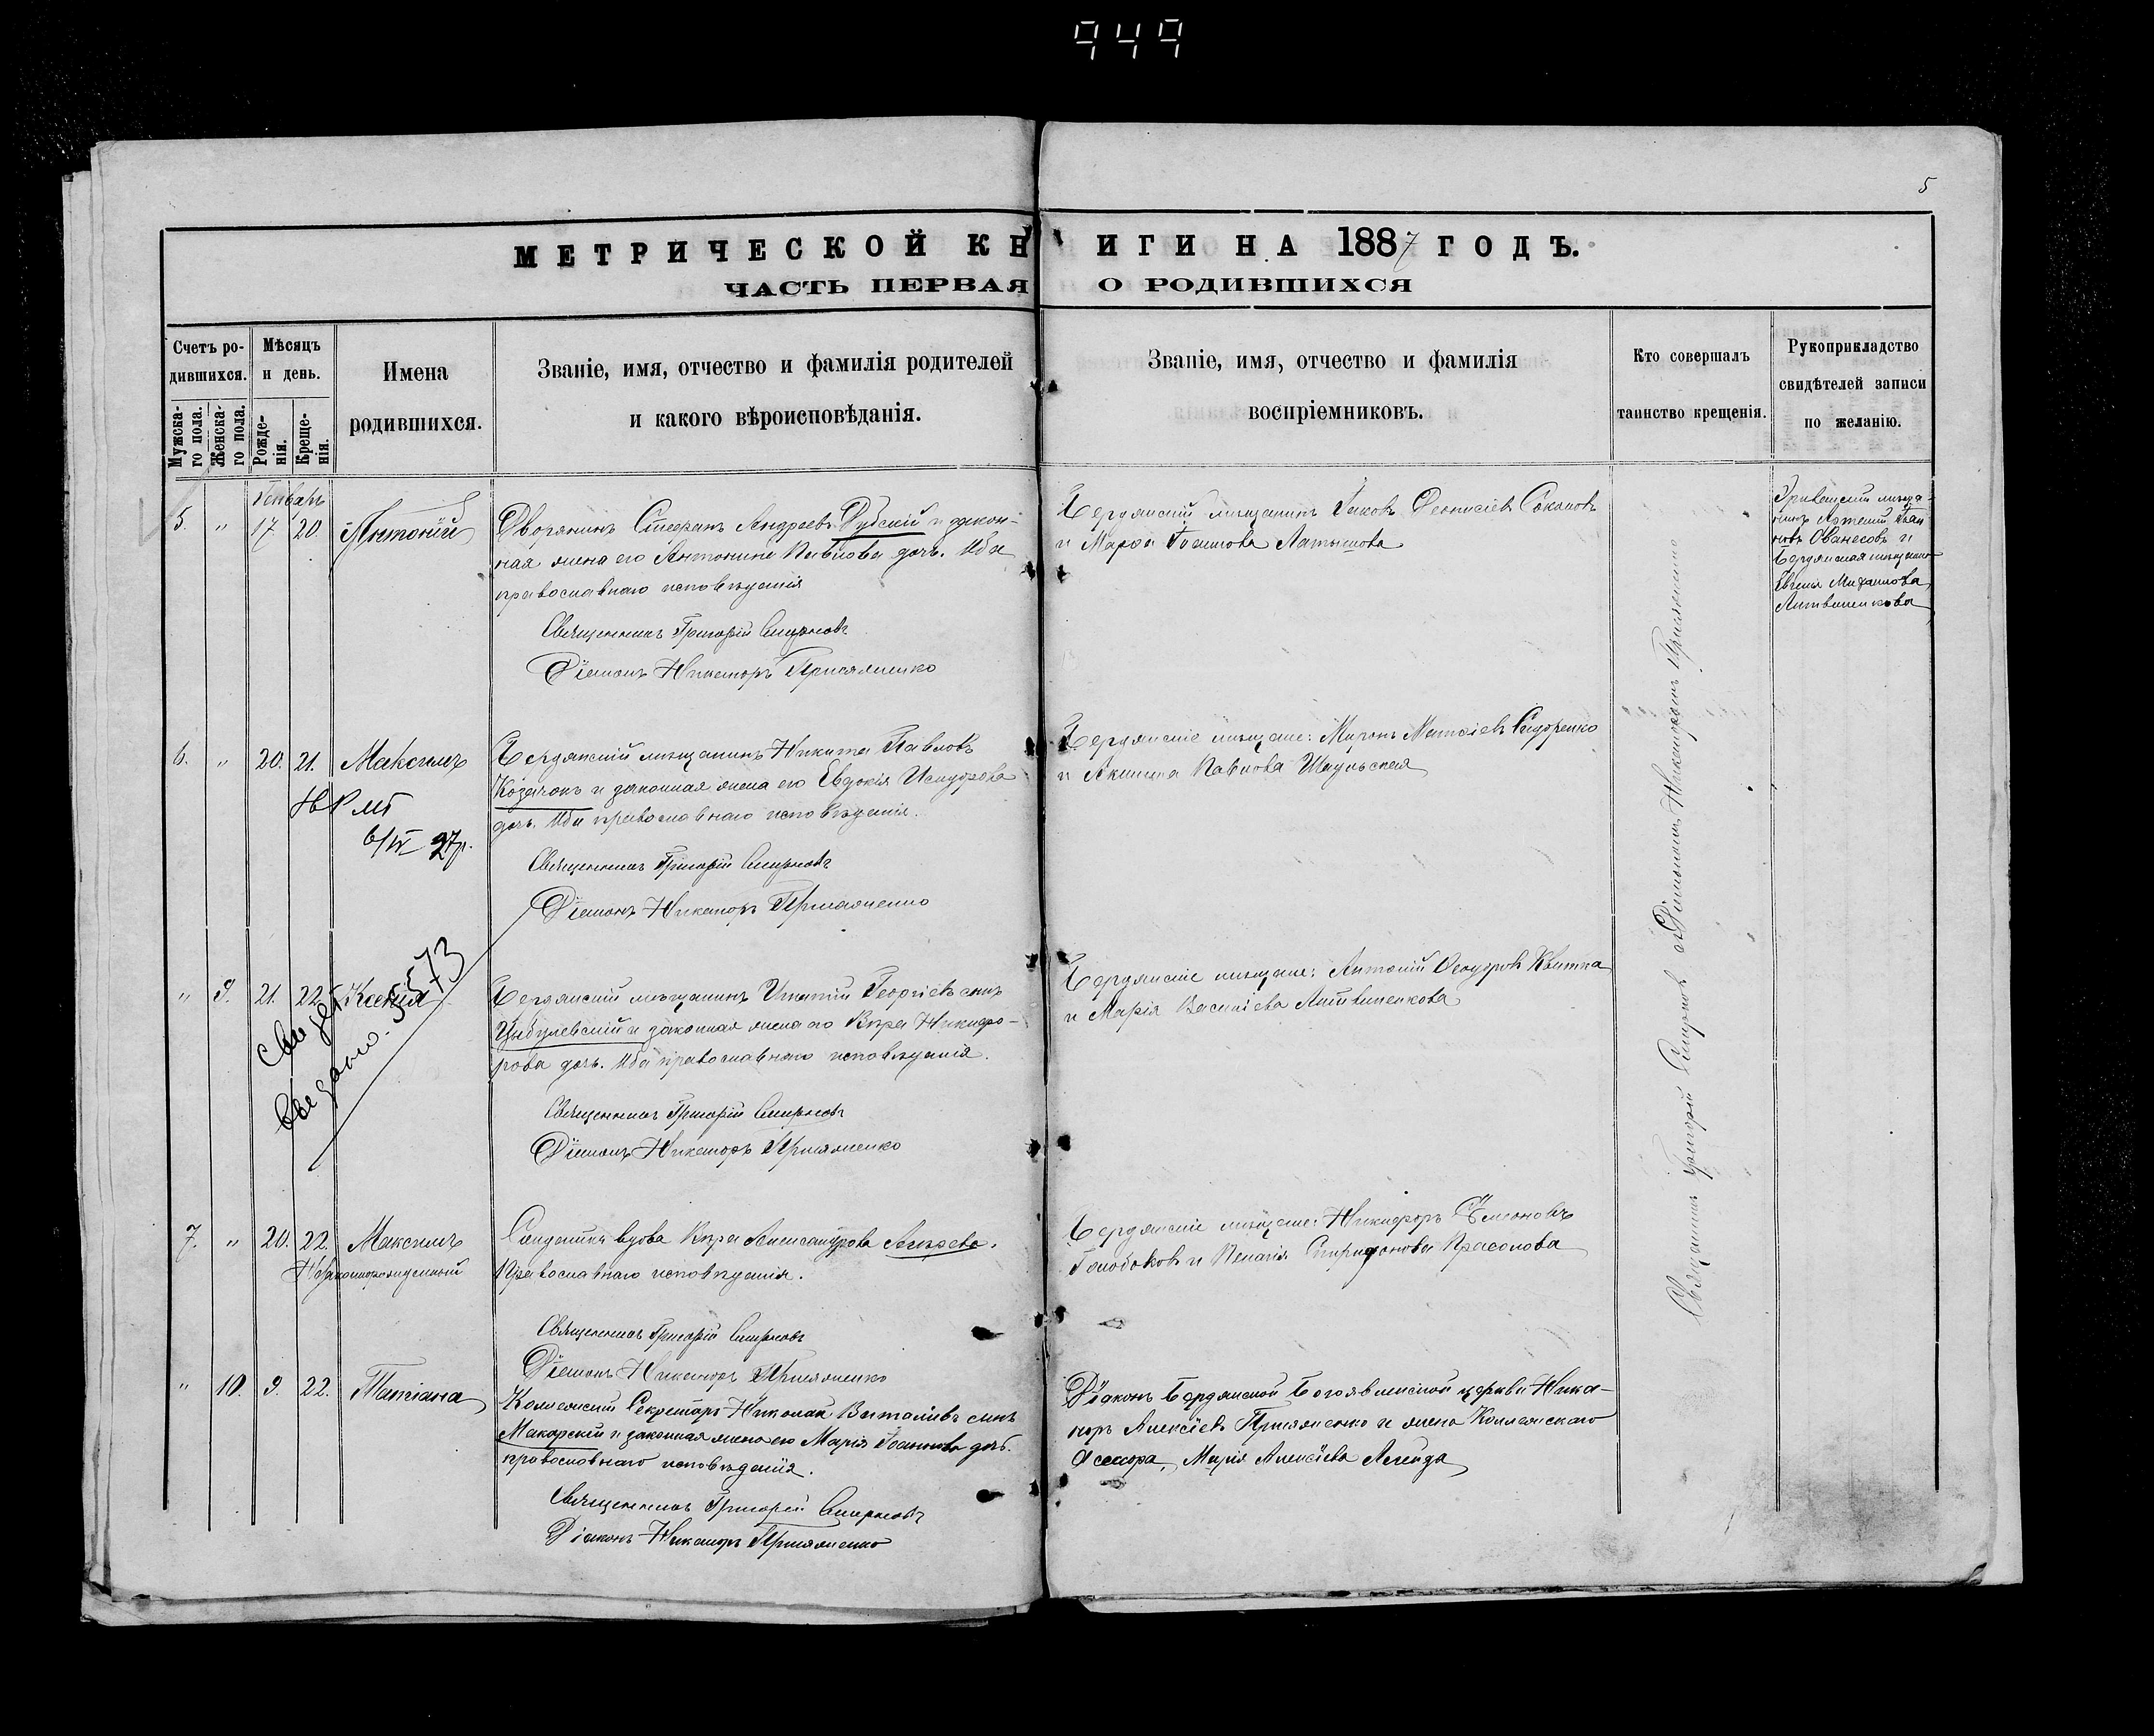 949
5
МЕТРИЧЕСКОЙ КНИГИ НА 1887 ГОДЪ.
ЧАСТЬ ПЕРВАЯ О РОДИВШИХСЯ
Счетъ ро-
дившихся.
Мужска-
го пола.
Женска-
го пола.
Мѣсяцъ
и день.
Рожде-
нія.
Креще-
нія.
Имена
родившихся.
Званіе, имя, отчество и фамилія родителей
и какого вѣроисповѣданія.
Званіе, имя, отчество и фамилія
воспріемниковъ.
Кто совершалъ
таинство крещенія.
Рукоприкладство
свидѣтелей записи
по желанію.
Генварь
5. " 17 20. Антоній
Дворянинъ Стефанъ Андреевъ Дубскій и закон-
ная жена его Антонина Павлова дочь. Оба
православнаго исповѣданія
Священникъ Григорій Смирновъ
Діаконъ Никаноръ Присяженко
Бердянскій мѣщанинъ Іаковъ Діонисіевъ Соколовъ
и Марѳа Іоаннова Латышова
мѣща-
нинъ Артемій Іоан
новъ Ованесовъ и
Бердянская мѣщанка
Евгенія Михайлова
Литвиненкова
6. " 20. 21. Максимъ
27р.
Бердянскій мѣщанинъ Никита Павловъ
Козачокъ и законная жена его Евдокія Исидорова
дочь. Оба православнаго исповѣданія.
Священникъ Григорій Смирновъ
Діаконъ Никаноръ Присяженко
Бердянскіе мѣщане: Миронъ Матѳіевъ Сидоренко
и Акилина Павлова Шадульская
" 9. 21. 22. Ксенія
Свидѣт.
выдано. 5573
Бердянскій мѣщанинъ Игнатій Георгіевъ сынъ
Цыбулевскій и законная жена его Вѣра Никифо-
рова дочь. Оба православнаго исповѣданія.
Священникъ Григорій Смирновъ
Діаконъ Никаноръ Присяженко
Бердянскіе мѣщане: Антоній Ѳеодоровъ Квитка
и Марія Васильева Литвиненкова
7. " 20. 22. Максимъ
Незаконнорожденный
вдова Вѣра Александрова
Православнаго исповѣданія.
Священникъ Григорій Смирновъ
Діаконъ Никаноръ Присяженко
Бердянскіе мѣщане: Никифоръ Сѵмеоновъ
Голобоковъ и Пелагія Спиридонова Прасолова
" 10. 9. 22. Татіана
Коллежскій Секретарь Николай Виталіевъ сынъ
Макарскій и законная жена его Марія Іоаннова дочь.
православнаго исповѣданія.
Священникъ Григорій Смирновъ
Діаконъ Никаноръ Присяженко
Діаконъ Бердянской Богоявленской церкви Ника-
норъ Алексіевъ Присяженко и жена Коллежскаго
Асесора, Марія Алексіева Легейда
Священникъ Григорій Смирновъ съ Діакономъ Никаноромъ Присяженко